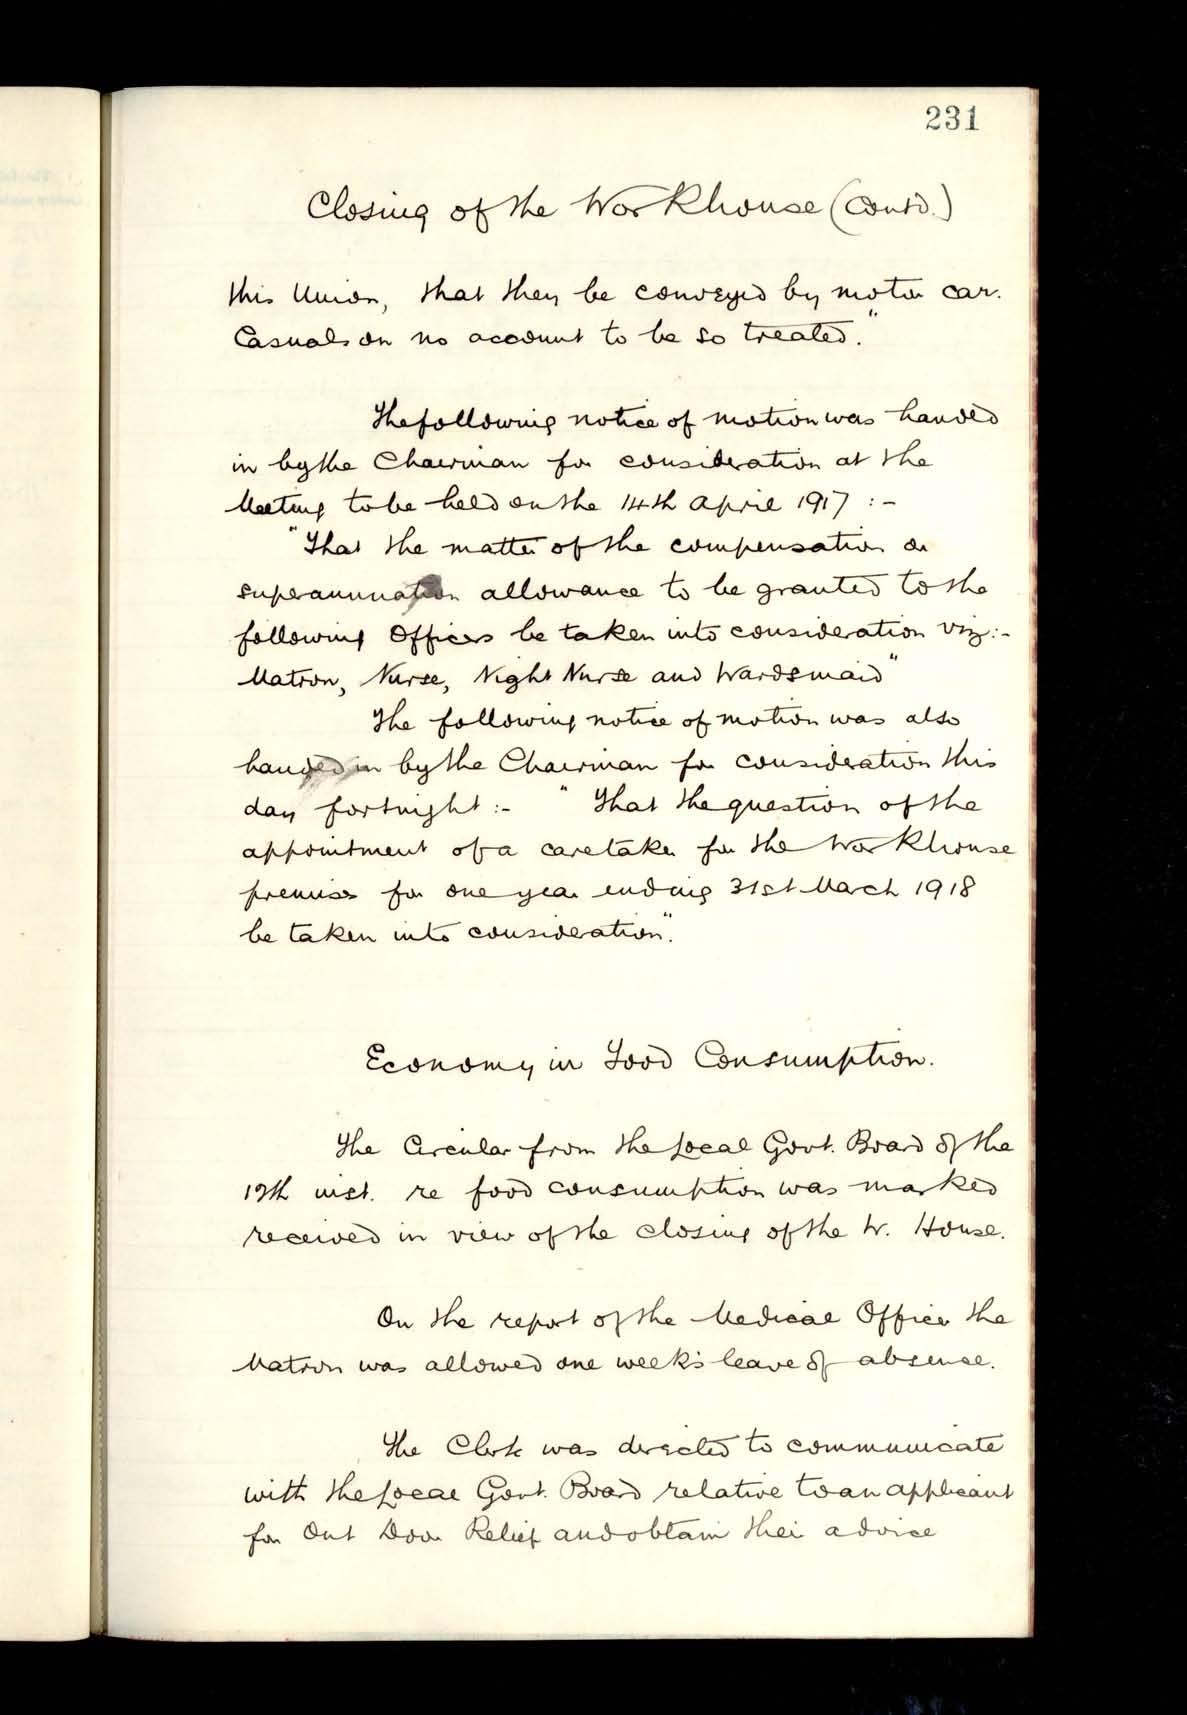 231
Closing of the Workhouse (Contd.)
this Union, that they be conveyed by motor car.
Casuals on no account to be so treated."
The following notice of motion was handed
in by the Chairman for consideration at the
Meeting to be held on the 14th April 1917 :-
"That the matter of the compensation or
superannuation allowance to be granted to the
following Officers be taken into consideration viz:-
Matron, Nurse, Night Nurse and Wardsmaid"
The following notice of motion was also
handed in by the Chairman for consideration this
day fortnight :- "That the question of the
appointment of a caretaker for the Workhouse
premises for one year ending 31st March 1918
be taken into consideration".
Economy in Food Consumption.
The Circular from the Local Govt. Board of the
inst. re food consumption was marked
received in view of the closing of the W. House.
On the report of the Medical Officer the
Matron was allowed one week's leave of absence.
The Clerk was directed to communicate
with the Local Govt. Board relative to an applicant
for Out Door Relief and obtain their advice